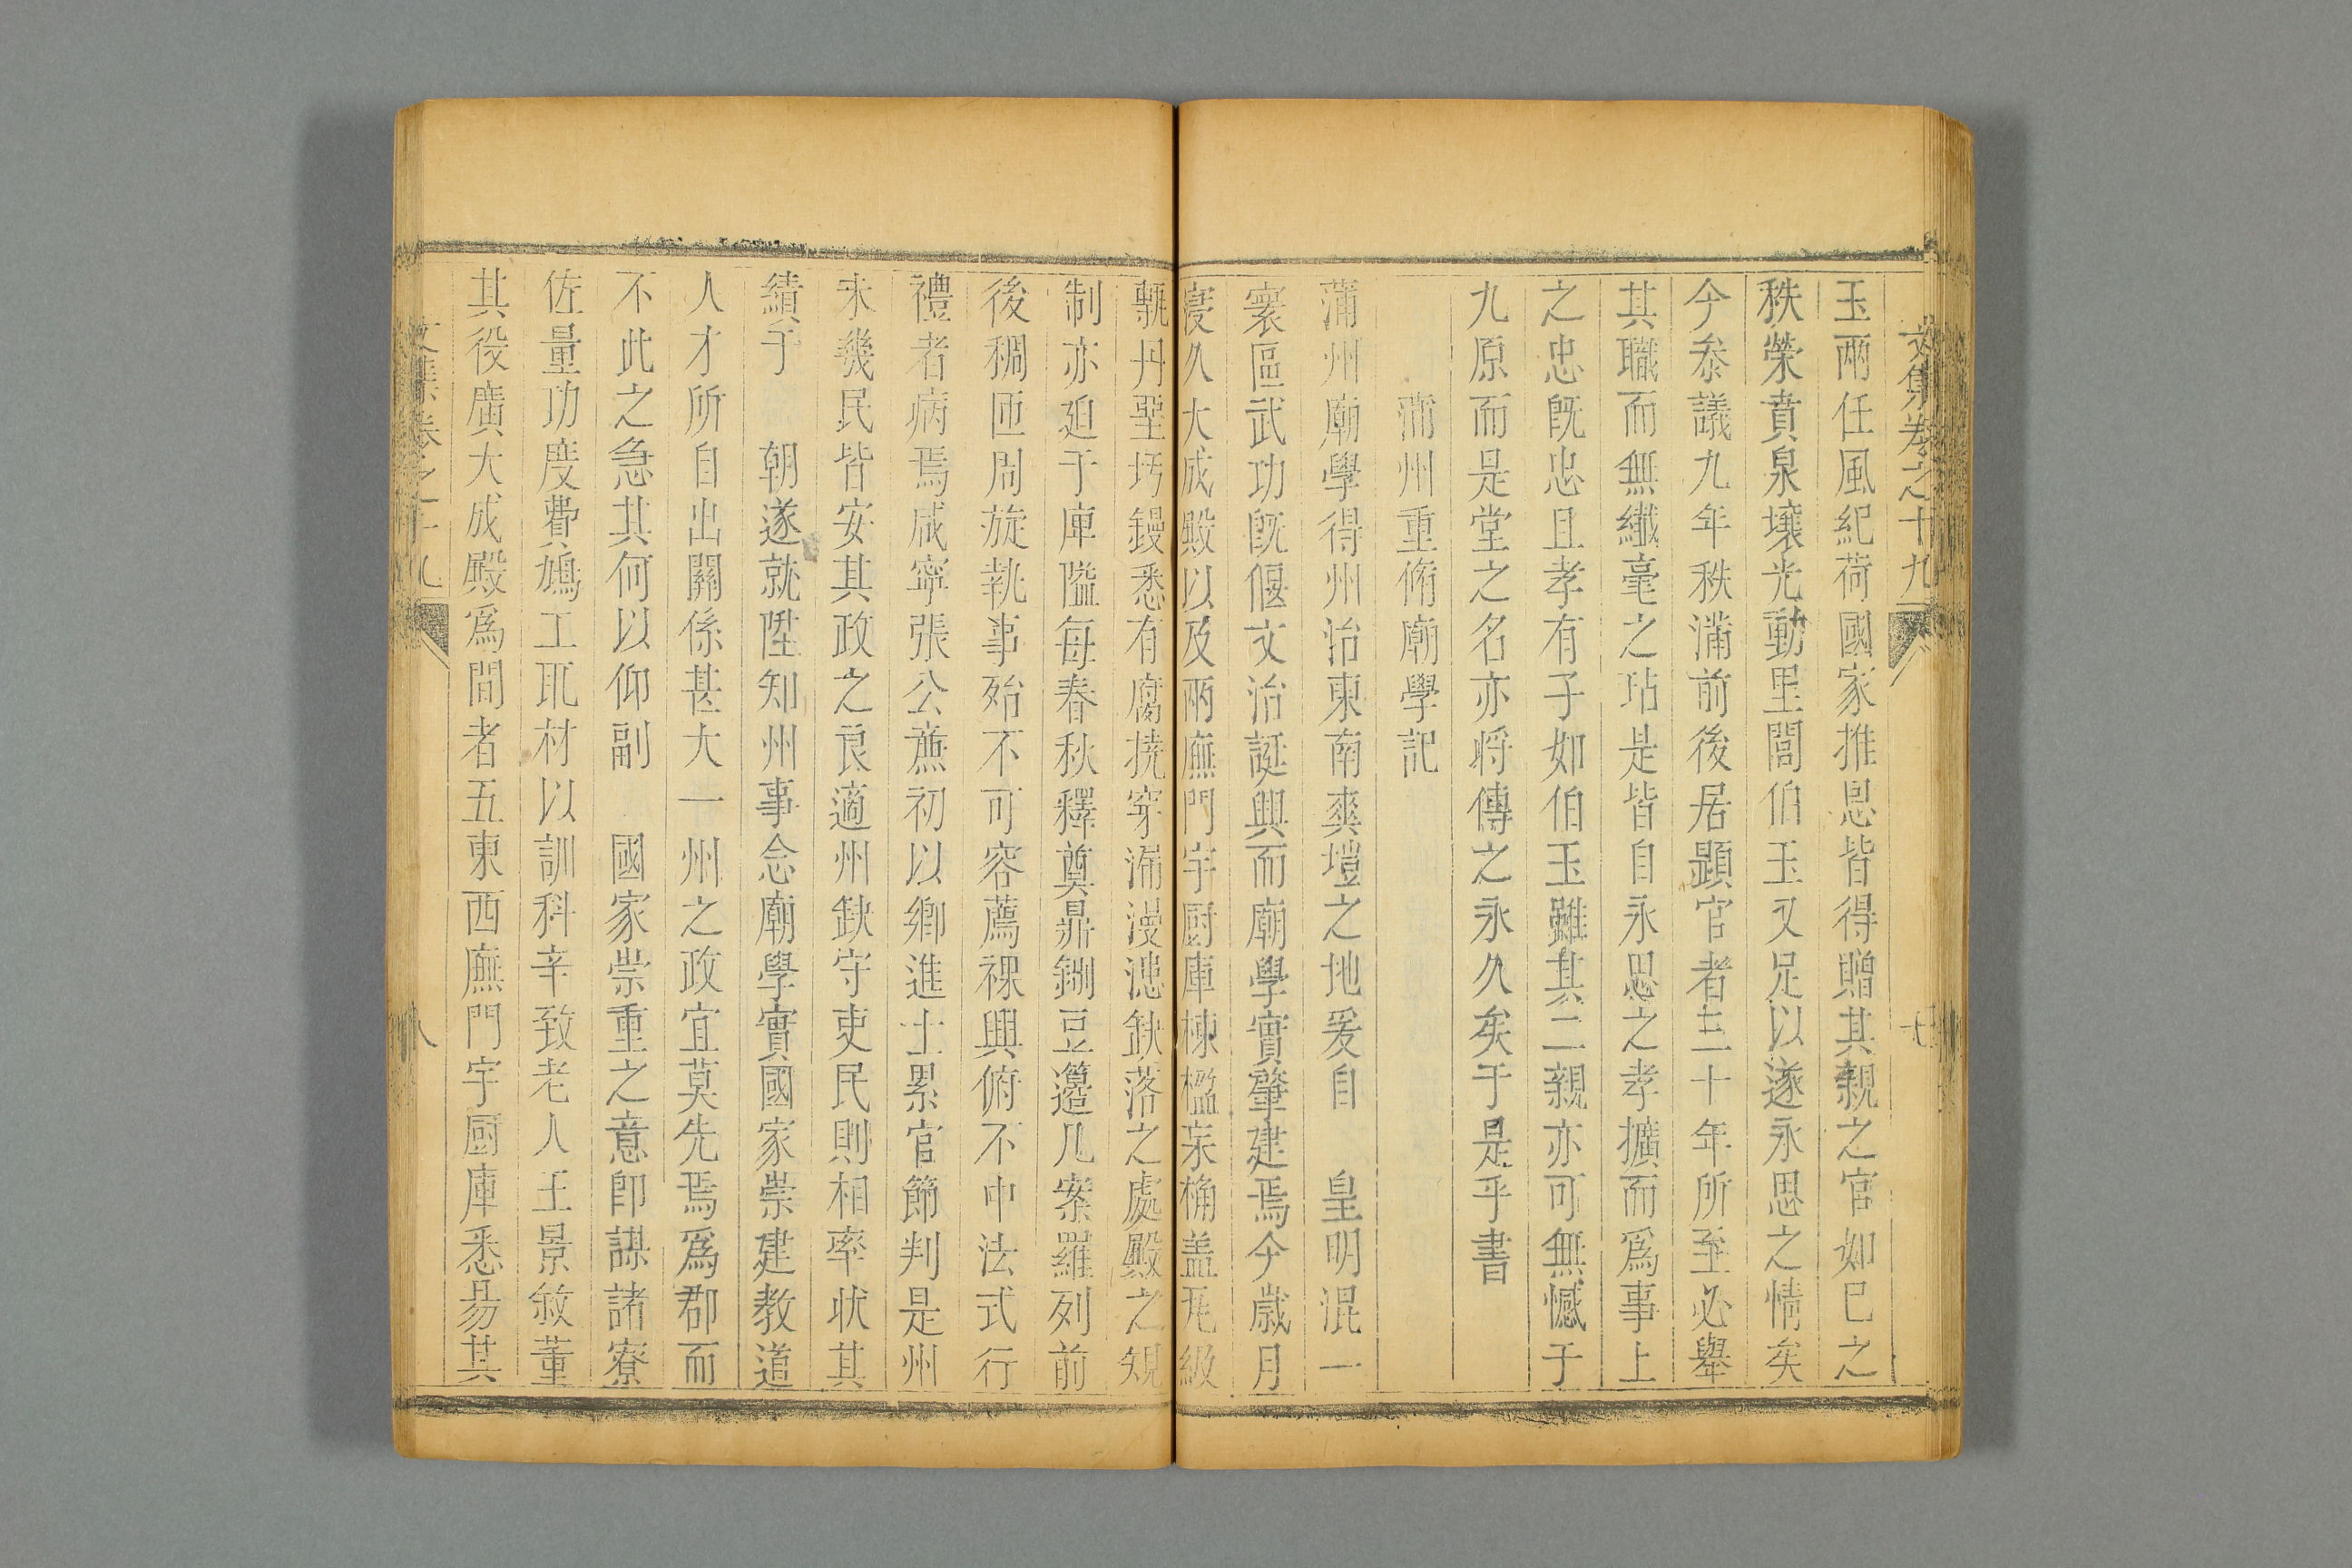 文集卷之十九
七
玉兩任風紀荷國家推恩皆得贈其親之官如己之
秩榮賁泉壤光動里閭伯玉又足以遂永思之情矣
今叅議九年秩滿前後居顯官者三十年所至必舉
其職而無纖毫之玷是皆自永思之孝擴而爲事上
之忠旣忠且孝有子如伯玉雖其二親亦可無憾于
九原而是堂之名亦将傳之永久矣于是乎書
蒲州重脩廟學記
蒲州廟學得州治東南爽塏之地爰自 皇明混一
寰區武功旣偃文治誕興而廟學實肇建焉今歲月
寖久大成殿以及兩廡門宇厨庫棟楹宋桷盖瓦級
甎丹堊圬鏝悉有腐撓穿漏漫漶缺落之處殿之規
制亦廹于庳隘每春秋釋奠鼎鉶豆籩几案羅列前
後稠匝周旋執事殆不可容薦祼興俯不中法式行
禮者病焉咸寧張公廉初以鄉進士累官節判是州
未幾民皆安其政之良適州缺守吏民則相率狀其
績于 朝遂就陞知州事念廟學實國家崇建教道
人才所自出關係甚大一州之政宜莫先焉爲郡而
不此之急其何以仰副 國家崇重之意卽謀諸寮
佐量功度費鳩工取材以訓科辛致老人王景敘董
其役廣大成殿爲間者五東西廡門宇厨庫悉易其
文集卷之十九
八